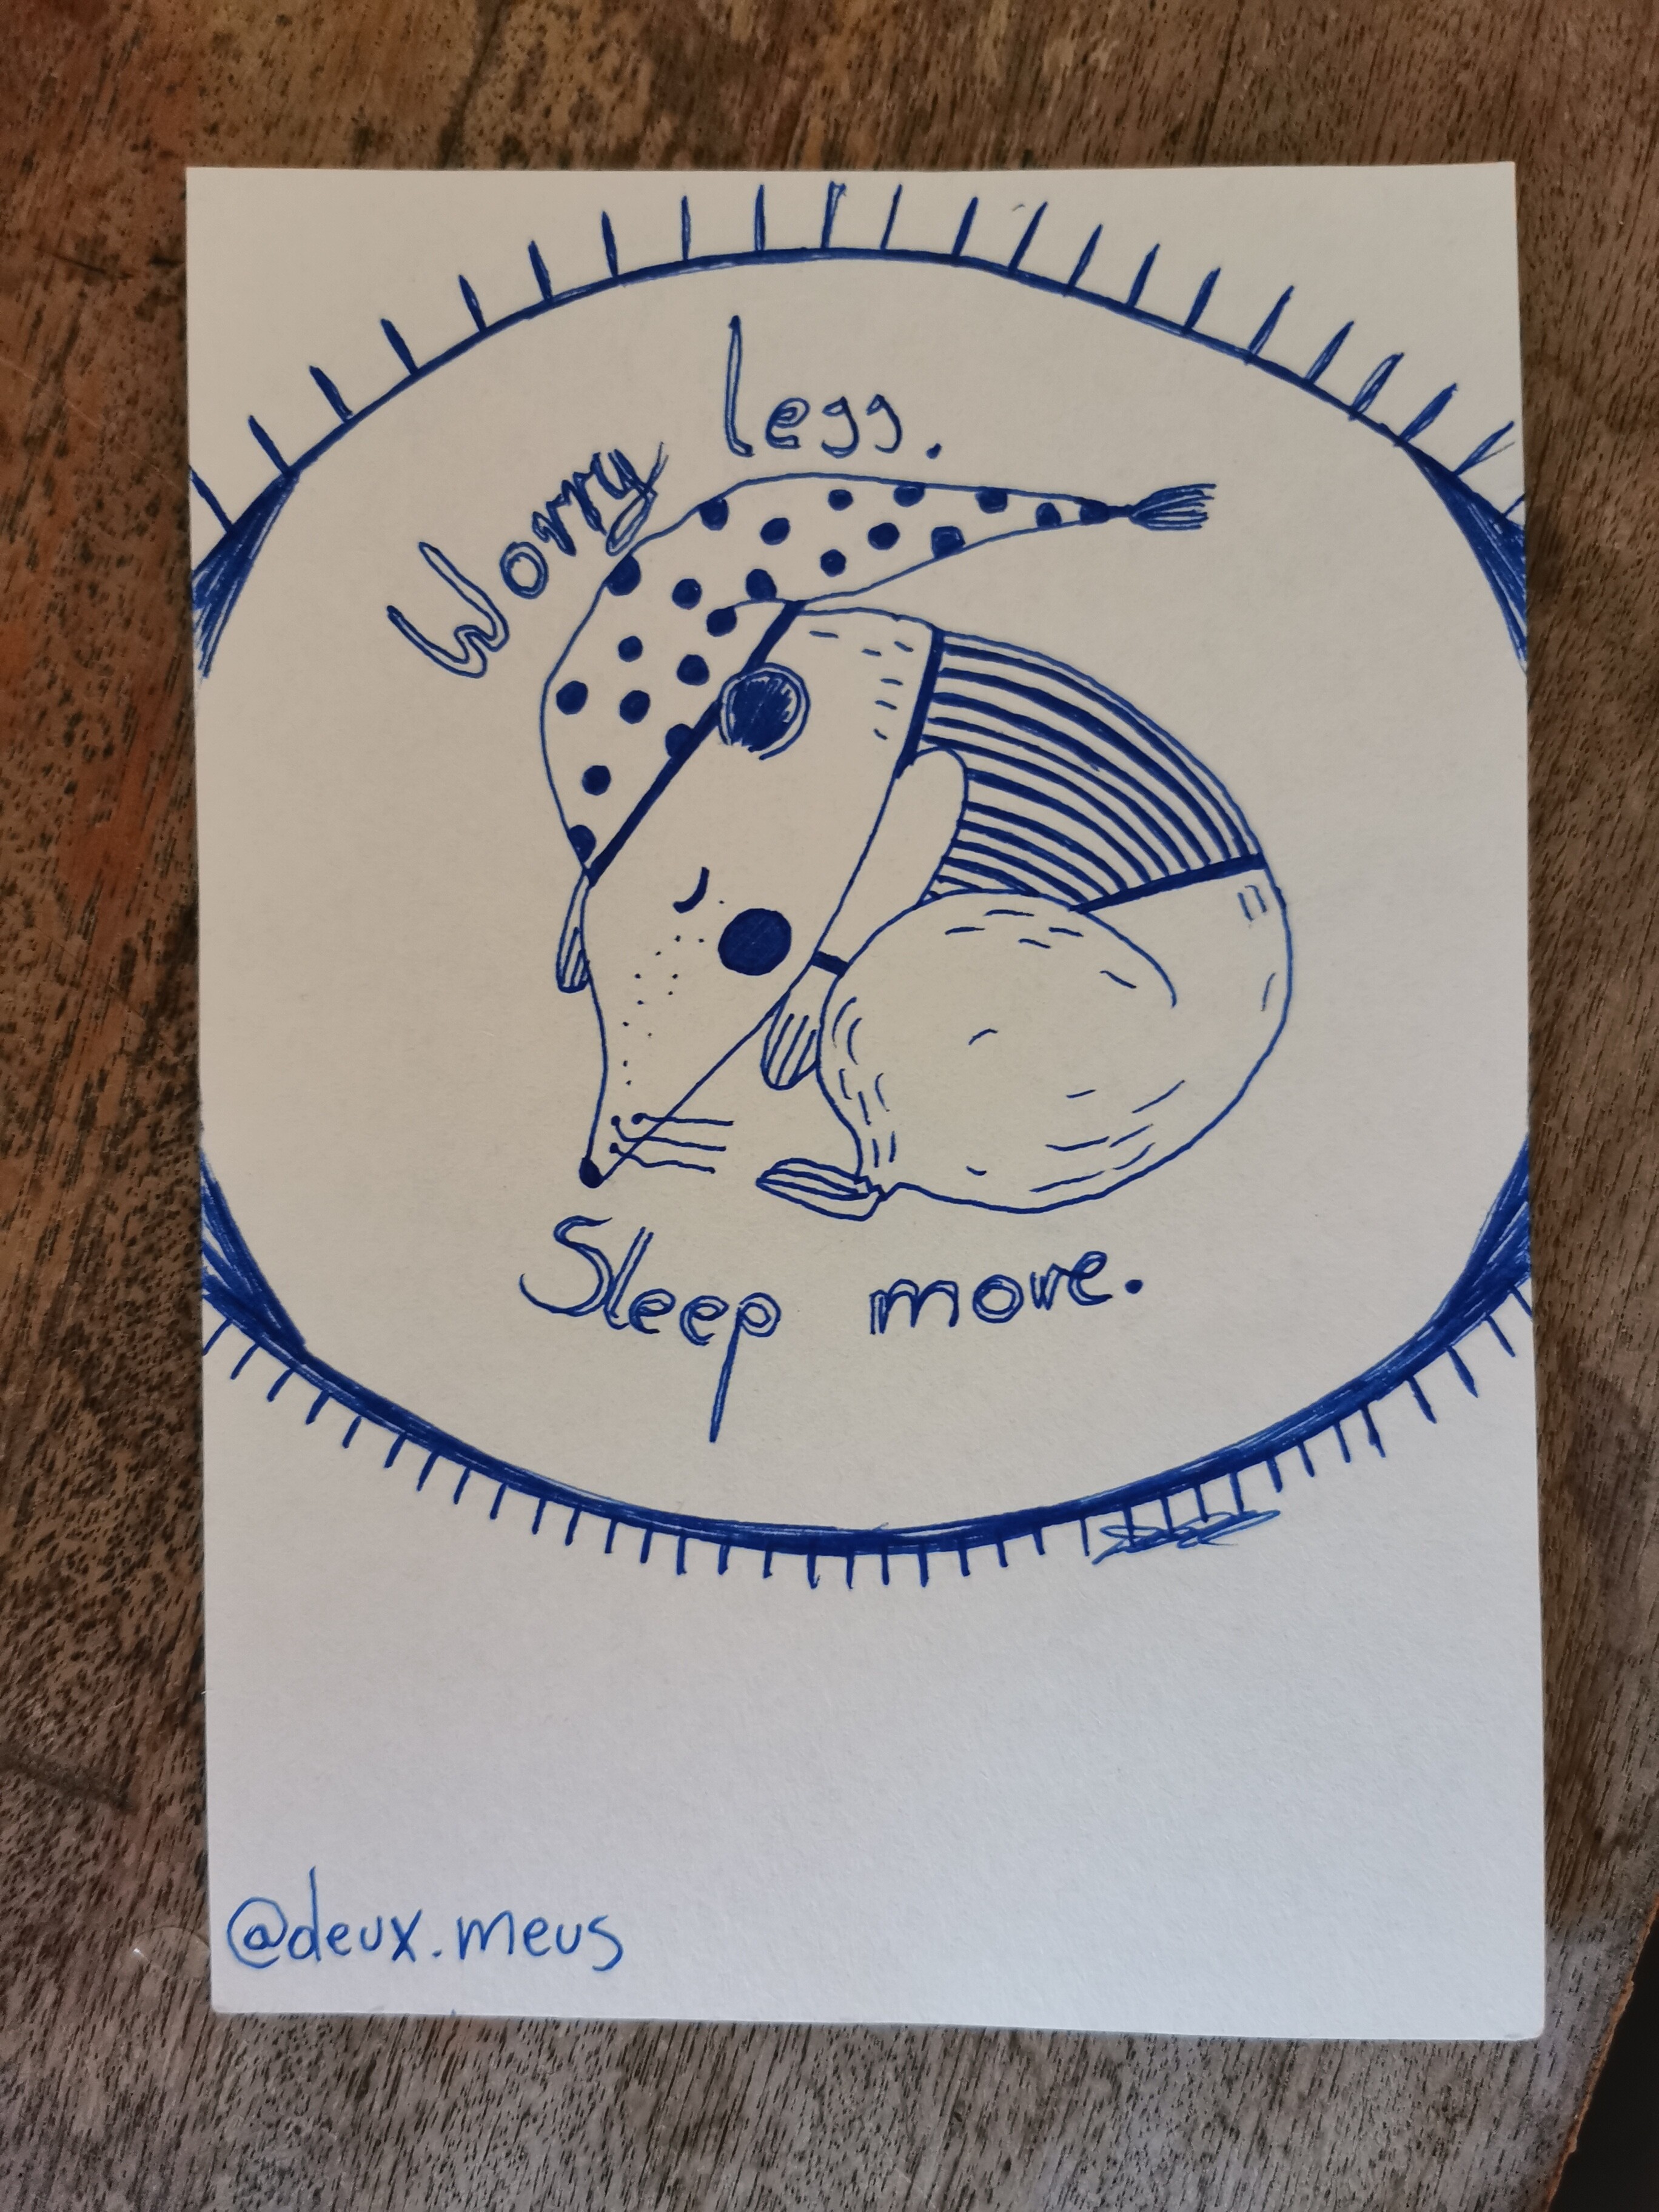 Worry less.
Sleep more.
@deux.meus